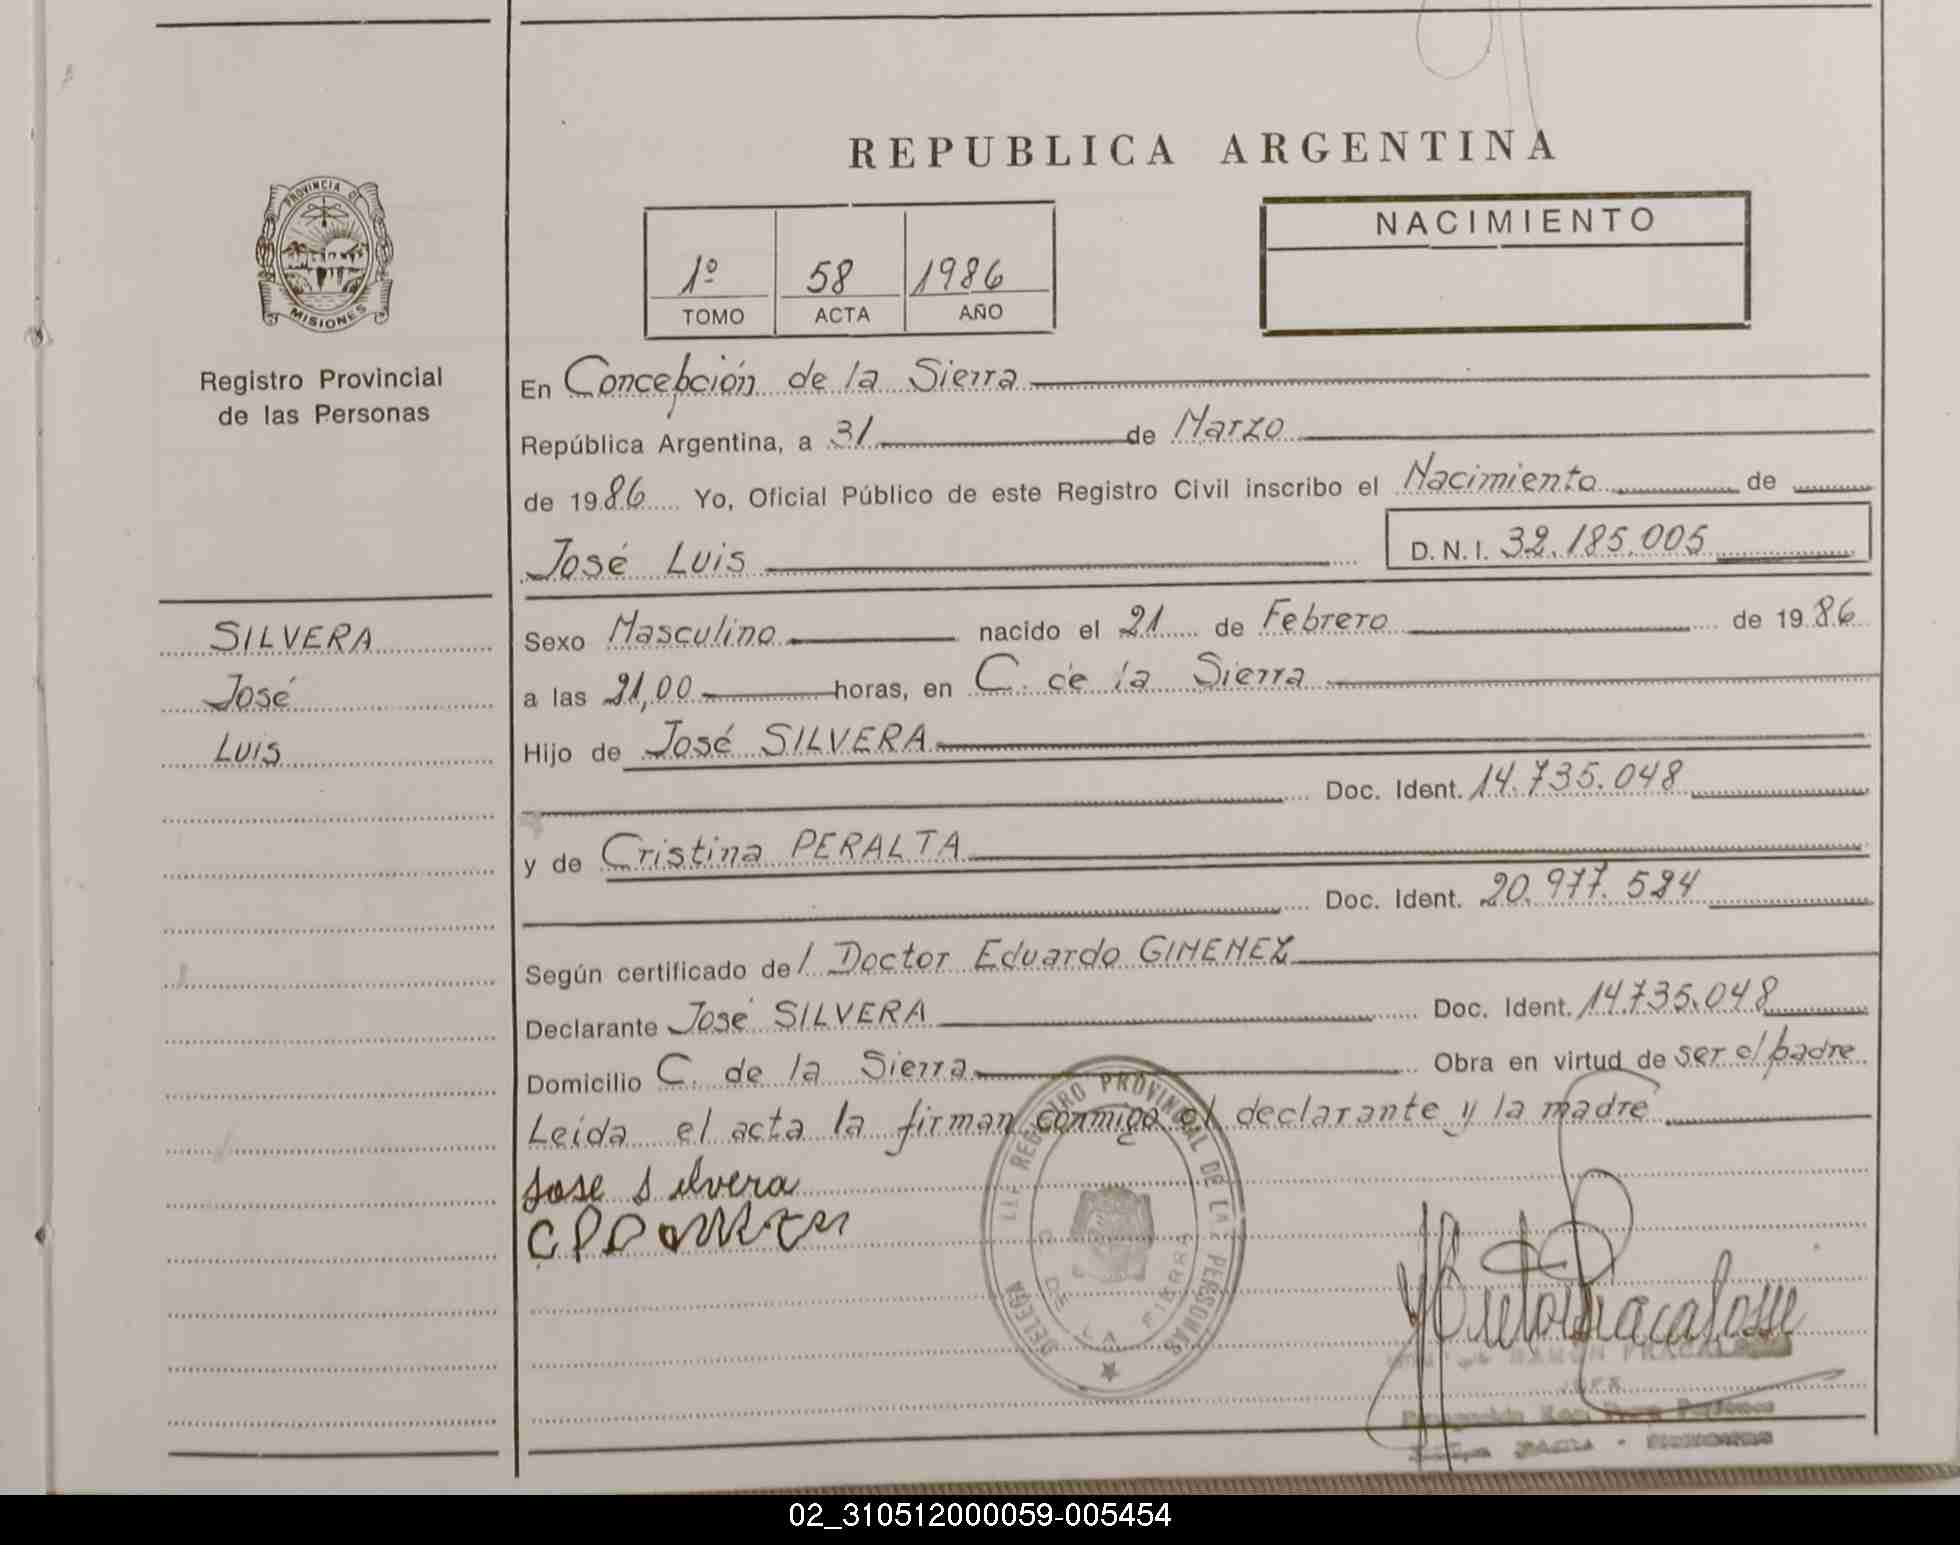 REPUBLICA ARGENTINA
PROVINCIA DE
MISIONES
Registro Provincial
de las Personas
NACIMIENTO
1º 58 1986
TOMO ACTA AÑO
En Concepción de la Sierra
República Argentina, a 31 de Marzo
de 1986 Yo, Oficial Público de este Registro Civil inscribo el Nacimiento de
José Luis D.N.I. 32.185.005
SILVERA
José
Luis
Sexo Masculino nacido el 21 de Febrero de 1986
a las 21,00 horas, en C. de la Sierra
Hijo de José SILVERA
Doc. Ident. 14.735.048
y de Cristina PERALTA
Doc. Ident. 20.977.524
Según certificado del Doctor Eduardo GIMENEZ
Declarante José SILVERA Doc. Ident. 14.735.048
Domicilio C. de la Sierra Obra en virtud de ser el padre
Leida el acta la firman conmigo el declarante y la madre
Jose Silvera
REGISTRO PROVINCIAL DE LAS PERSONAS
C. DE LA SIERRA
02_310512000059-005454